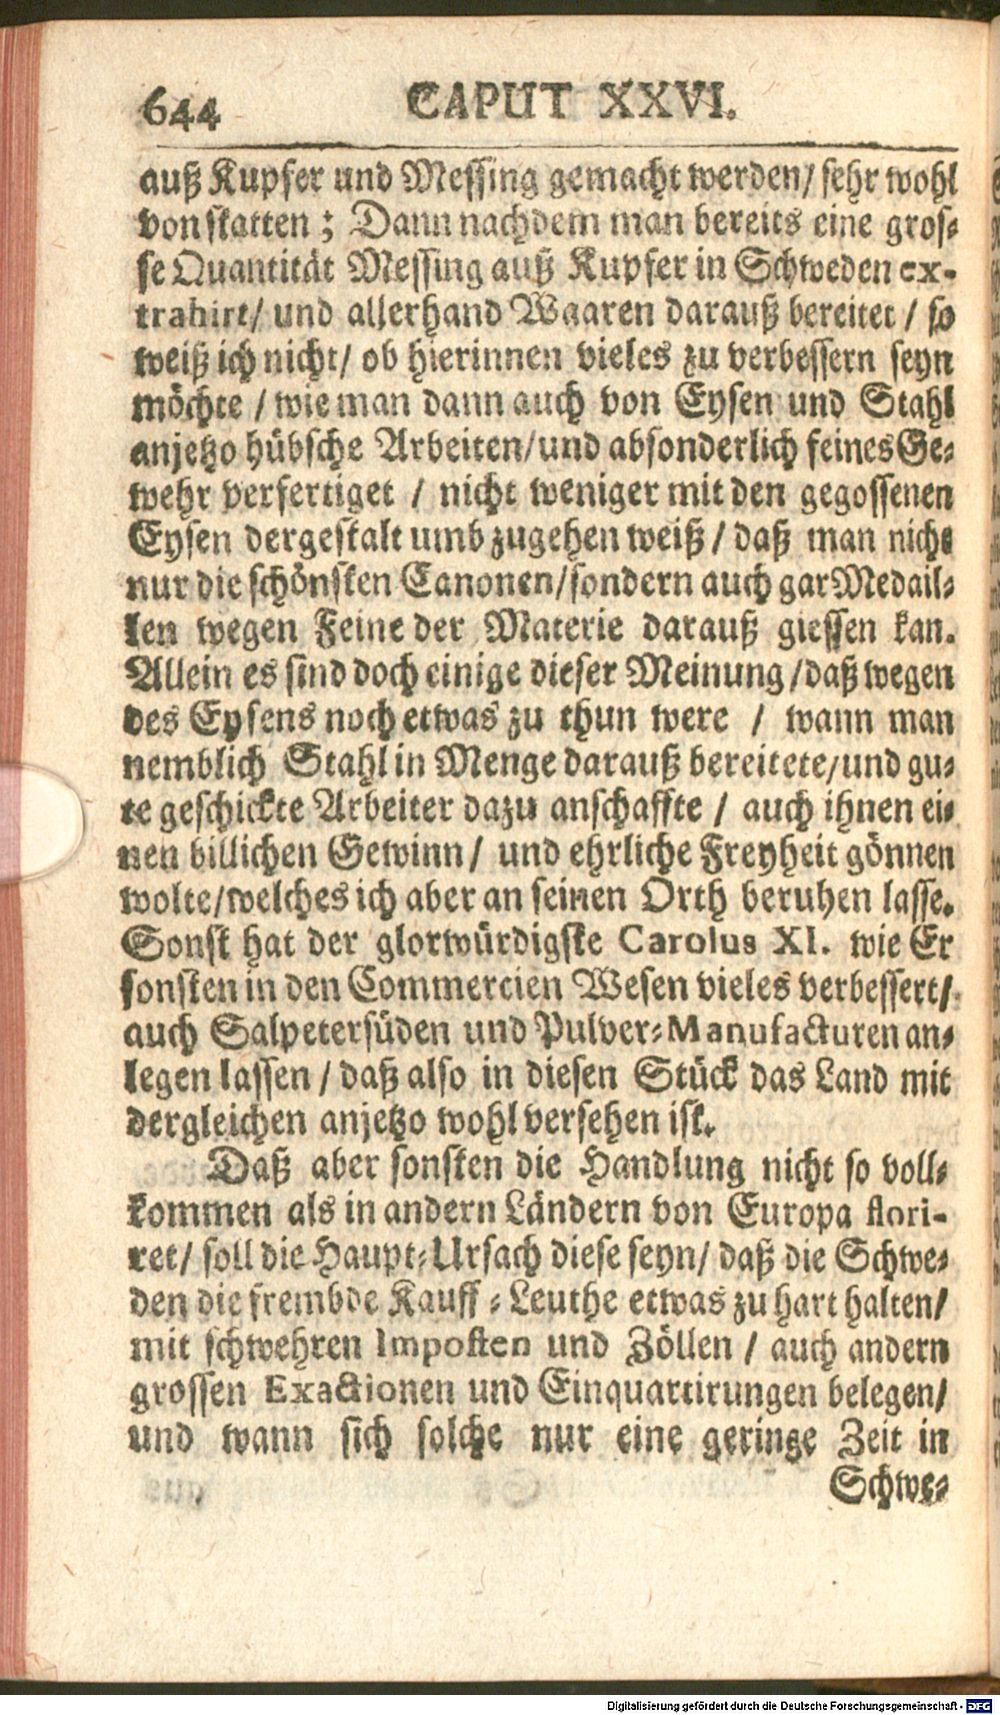 644 CAPUT XXVI.
auß Kupfer und Messing gemacht werden/ sehr wohl
von statten ; Dann nachdem man bereits eine gros-
se Quantität Messing auß Kupfer in Schweden ex-
trahirt/ und allerhand Waaren darauß bereitet / so
weiß ich nicht/ ob hierinnen vieles zu verbessern seyn
möchte / wie man dann auch von Eysen und Stahl
anjetzo hübsche Arbeiten/und absonderlich feines Ge-
wehr verfertiget / nicht weniger mit den gegossenen
Eysen dergestalt umb zugehen weiß / daß man nicht
nur die schönsten Canonen/sondern auch gar Medail-
len wegen Feine der Materie darauß giessen kan.
Allein es sind doch einige dieser Meinung /daß wegen
des Eysens noch etwas zu thun were / wann man
nemblich Stahl in Menge darauß bereitete/und gu-
te geschickte Arbeiter dazu anschaffte / auch ihnen ei-
nen billichen Gewinn/ und ehrliche Freyheit gönnen
wolte/welches ich aber an seinen Orth beruhen lasse.
Sonst hat der glorwürdigste Carolus XI. wie Er
sonsten in den Commercien Wesen vieles verbessert/
auch Salpetersüden und Pulver-Manufacturen an-
legen lassen / daß also in diesen Stück das Land mit
dergleichen anjetzo wohl versehen ist.
Daß aber sonsten die Handlung nicht so voll-
kommen als in andern Ländern von Europa flori-
ret/ soll die Haupt-Ursach diese seyn/ daß die Schwe-
den die frembde Kauff-Leuthe etwas zu hart halten/
mit schwehren Imposten und Zöllen / auch andern
grossen Exactionen und Einquartirungen belegen/
und wann sich solche nur eine geringe Zeit in
Schwe-
Digitalisierung gefördert durch die Deutsche Forschungsgemeinschaft - DFG